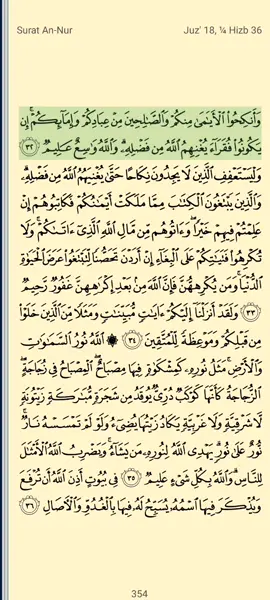 Surat An-Nur
Juz' 18, ¼ Hizb 36
وَأَنكِحُوا۟ ٱلْأَيَـٰمَىٰ مِنكُمْ وَٱلصَّـٰلِحِينَ مِنْ عِبَادِكُمْ وَإِمَآئِكُمْ ۚ إِن
يَكُونُوا۟ فُقَرَآءَ يُغْنِهِمُ ٱللَّهُ مِن فَضْلِهِۦ ۗ وَٱللَّهُ وَٰسِعٌ عَلِيمٌ ٣٢
وَلْيَسْتَعْفِفِ ٱلَّذِينَ لَا يَجِدُونَ نِكَاحًا حَتَّىٰ يُغْنِيَهُمُ ٱللَّهُ مِن فَضْلِهِۦ ۗ
وَٱلَّذِينَ يَبْتَغُونَ ٱلْكِتَـٰبَ مِمَّا مَلَكَتْ أَيْمَـٰنُكُمْ فَكَاتِبُوهُمْ إِنْ
عَلِمْتُمْ فِيهِمْ خَيْرًا ۖ وَءَاتُوهُم مِّن مَّالِ ٱللَّهِ ٱلَّذِىٓ ءَاتَىٰكُمْ ۚ وَلَا
تُكْرِهُوا۟ فَتَيَـٰتِكُمْ عَلَى ٱلْبِغَآءِ إِنْ أَرَدْنَ تَحَصُّنًا لِّتَبْتَغُوا۟ عَرَضَ ٱلْحَيَوٰةِ
ٱلدُّنْيَا ۚ وَمَن يُكْرِههُّنَّ فَإِنَّ ٱللَّهَ مِنۢ بَعْدِ إِكْرَٰهِهِنَّ غَفُورٌ رَّحِيمٌ
٣٣ وَلَقَدْ أَنزَلْنَآ إِلَيْكُمْ ءَايَـٰتٍ مُّبَيِّنَـٰتٍ وَمَثَلًا مِّنَ ٱلَّذِينَ خَلَوْا۟
مِن قَبْلِكُمْ وَمَوْعِظَةً لِّلْمُتَّقِينَ ٣٤ ۞ ٱللَّهُ نُورُ ٱلسَّمَـٰوَٰتِ
وَٱلْأَرْضِ ۚ مَثَلُ نُورِهِۦ كَمِشْكَوٰةٍ فِيهَا مِصْبَاحٌ ۖ ٱلْمِصْبَاحُ فِى زُجَاجَةٍ ۖ
ٱلزُّجَاجَةُ كَأَنَّهَا كَوْكَبٌ دُرِّىٌّ يُوقَدُ مِن شَجَرَةٍ مُّبَـٰرَكَةٍ زَيْتُونَةٍ
لَّا شَرْقِيَّةٍ وَلَا غَرْبِيَّةٍ يَكَادُ زَيْتُهَا يُضِىٓءُ وَلَوْ لَمْ تَمْسَسْهُ نَارٌ ۚ
نُّورٌ عَلَىٰ نُورٍ ۗ يَهْدِى ٱللَّهُ لِنُورِهِۦ مَن يَشَآءُ ۚ وَيَضْرِبُ ٱللَّهُ ٱلْأَمْثَـٰلَ
لِلنَّاسِ ۗ وَٱللَّهُ بِكُلِّ شَىْءٍ عَلِيمٌ ٣٥ فِى بُيُوتٍ أَذِنَ ٱللَّهُ أَن تُرْفَعَ
وَيُذْكَرَ فِيهَا ٱسْمُهُۥ يُسَبِّحُ لَهُۥ فِيهَا بِٱلْغُدُوِّ وَٱلْـَٔاصَالِ ٣٦
354